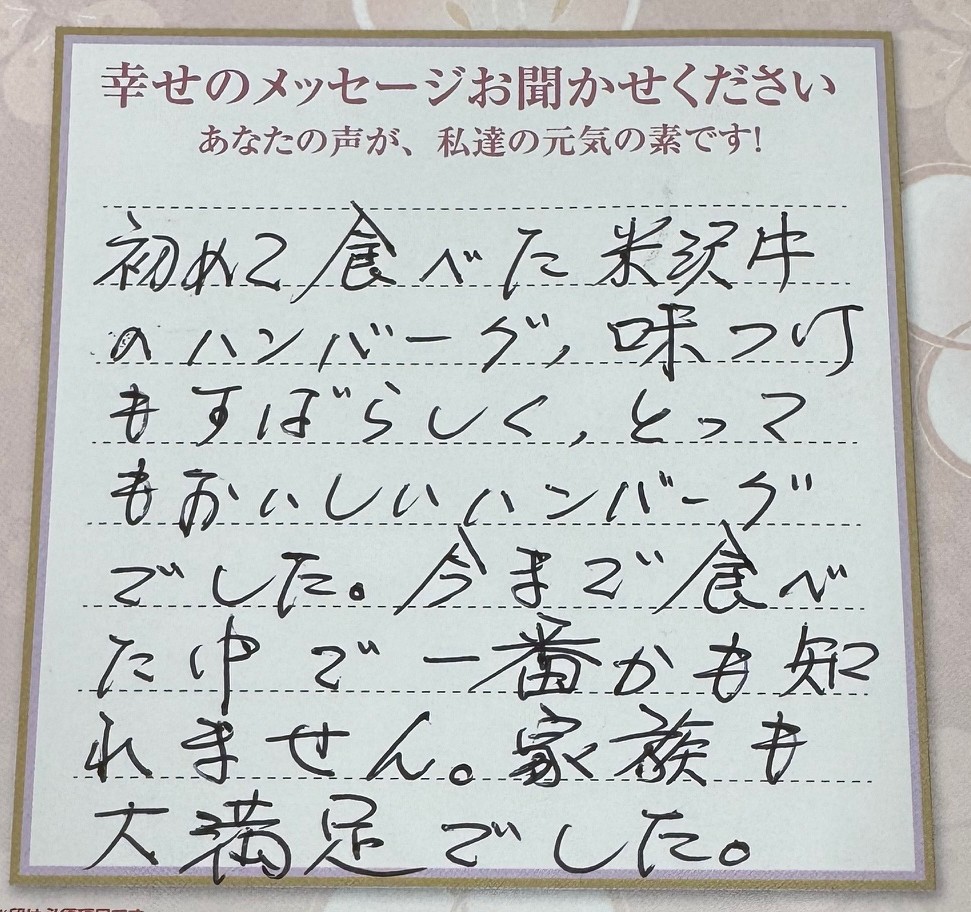 幸せのメッセージお聞かせください
あなたの声が、私達の元気の素です!
初めて食べた米沢牛
のハンバーグ, 味つけ
もすばらしく, とって
もおいしいハンバーグ
でした。今まで食べ
た中で一番かも知
れません。家族も
大満足でした。